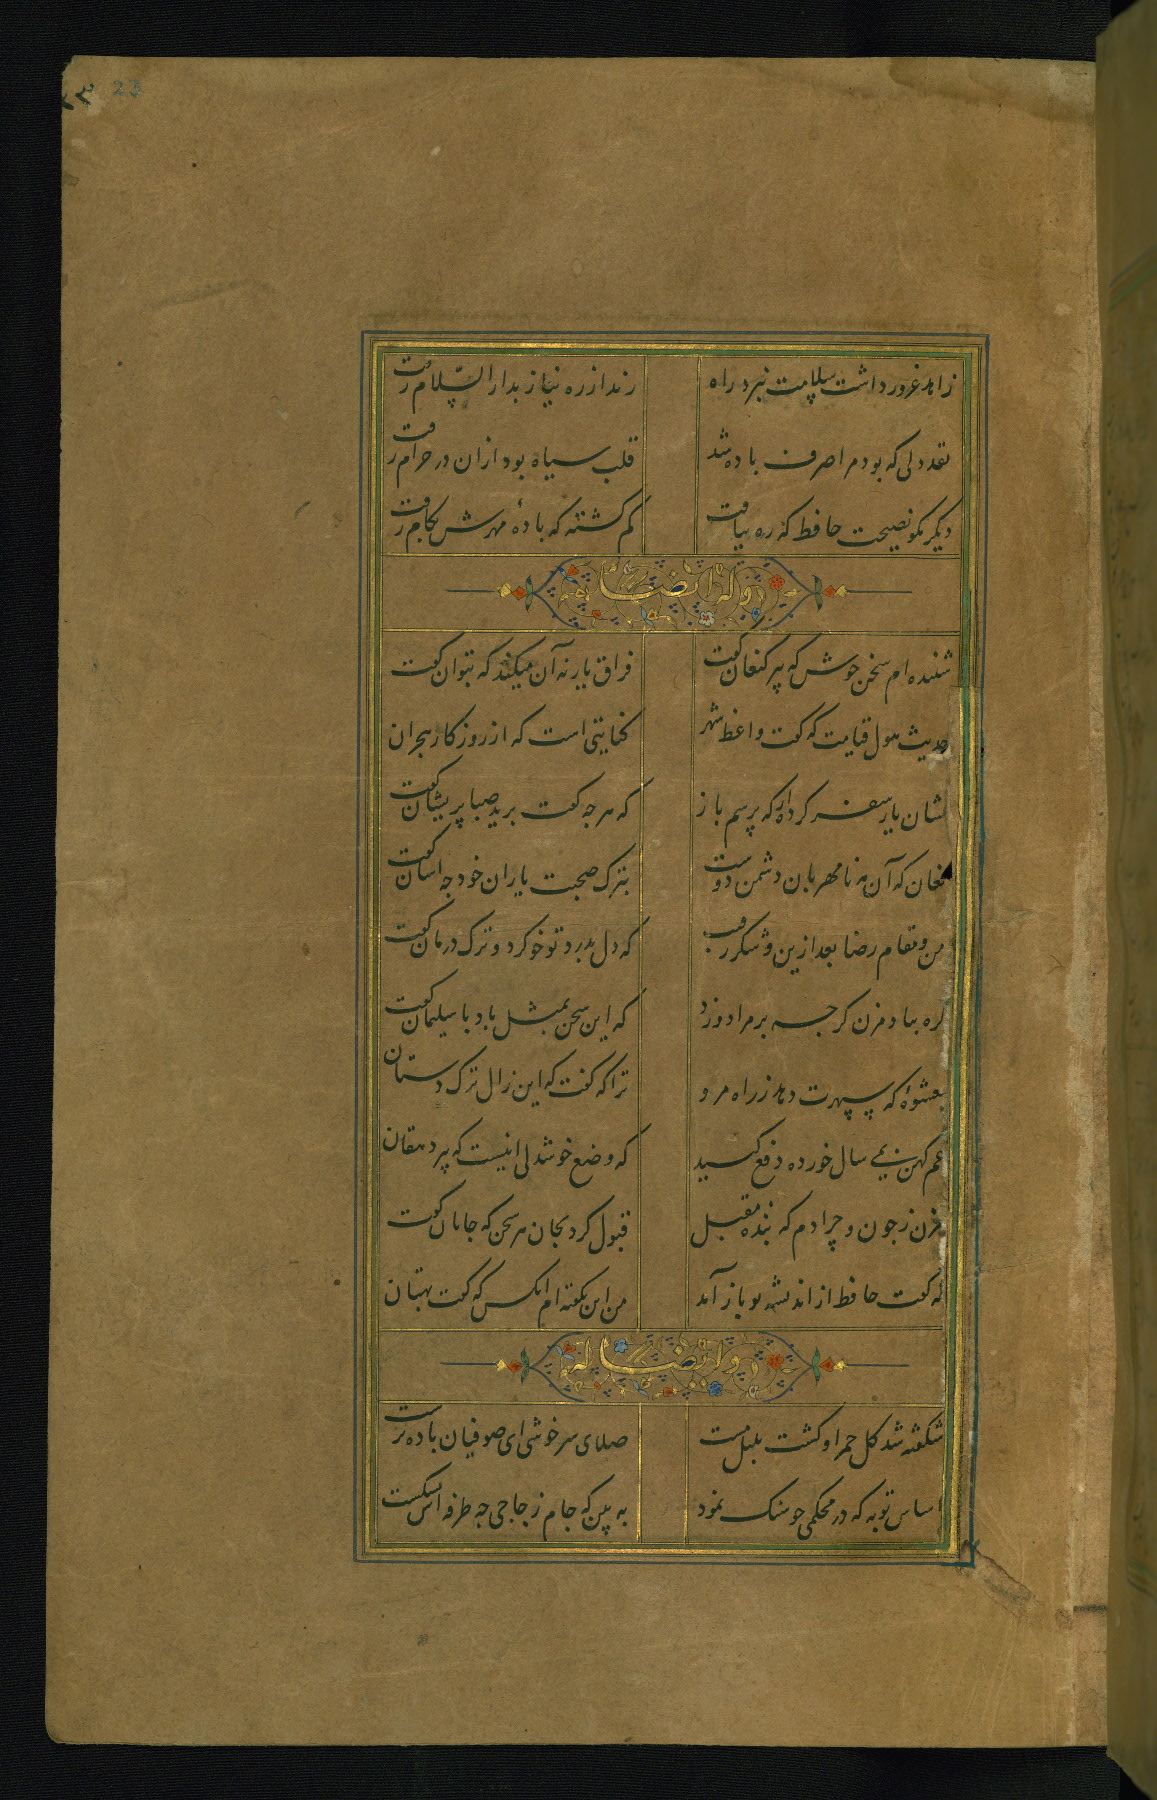 23
۲۳
زاهد غرور داشت سلامت نبرد راه
رند از ره نیاز بدار السّلام رفت
نقد دلی که بود مرا صرف باده شد
قلب سیاه بود از آن در حرام رفت
دیگر مکو نصیحت حافظ که ره نیافت
کم کشته که بادهٔ مهرش بکام رفت
وله ایضا
شنیده ام سخن خوش که پیر کنعان کفت
فراق یار نه آن میکند که بتوان کفت
حدیث هول قیامت که کفت واعظ شهر
کنایتی است که از روزکار هجران
نشان یار سفر کرده از که پرسم باز
که هر چه کفت برید صبا پریشان کفت
فغان که آن مه نامهربان دشمن دوست
بترک صحبت یاران خود چه آسان کفت
من و مقام رضا بعد ازین و شکر رقیب
که دل بدرد تو خو کرد و ترک درمان کفت
کره بباد مزن کرچه بر مراد وزد
که این سخن بمثل باد با سلیمان کفت
بعشوهٔ که سپهرت دهد ز راه مرو
ترا که کفت که این زال ترک دستان
غم کهن بمی سال خورده دفع کنید
که وضع خوشدلی اینست که پیر دهقان
مزن ز چون و چرا دم که بنده مقبل
قبول کرد بجان هر سخن که جانان کفت
که کفت حافظ از اندیشه تو باز آمد
من این نکفته ام آنکس که کفت بهتان
وله ایضا
شکفته شد کل حمرا و کشت بلبل مست
صلای سرخوشی ای صوفیان باده پرست
اساس توبه که در محکمی چو سنک نمود
به بین که جام زجاجی چه طرفه اش بشکست